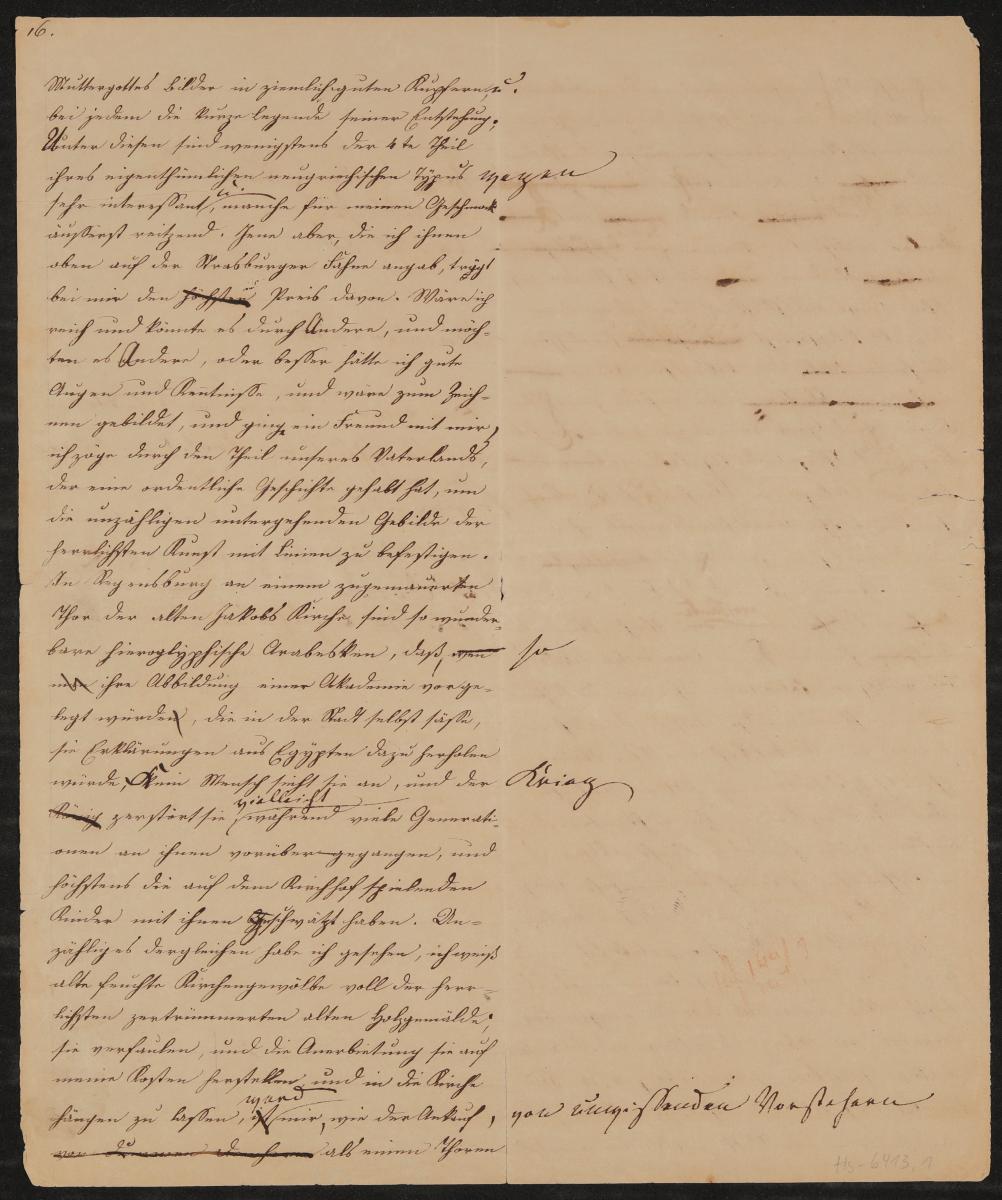 16.
Muttergottes bilder in ziemlich guten Kupfern, u.
bei jedem die kurze legende seiner Entstehung.
Unter diesen sind wenigstens der 4te Theil
ihres eigenthümlichen neugriechischen Typus wegen
sehr interessant, u. manche für meinen Geschmack
äußerst reitzend. Jene aber, die ich ihnen
oben auf der Strasburger Fahne angab, trägt
bei mir den höchsten Preis davon. Wäre ich
reich und könnte es durch Andere, und möch-
ten es Andere, oder besser hätte ich gute
Augen und Kentnisse, und wäre zum Zeich-
nen gebildet, und ging ein Freund mit mir,
ich zöge durch den Theil unseres Vaterlands,
der eine ordentliche Geschichte gehabt hat, um
die unzähligen untergehenden Gebilde der
herrlichsten Kunst mit Linien zu befestigen.
In Regensburg an einem zugemauerten
Thor der alten Jakobs Kirche, sind so wunder-
bare hieroglyphische Arabesken, daß, wen so
man ihre Abbildung einer Akademie vorge-
legt würden, die in der Stadt selbst sässe,
sie Erklärungen aus Egypten dazu herholen
würde, Kein Mensch sieht sie an, und der Krieg
König zerstört sie vielleicht während viele Generati-
onen an ihnen vorüber gegangen, und
höchstens die auf dem Kirchhof spielenden
Kinder mit ihnen Geschwätzt haben. Un-
zähliges dergleichen habe ich gesehen, ich weiß
alte feuchte Kirchengewölbe voll der herr-
lichsten zertrümmerten alten Holzgemälde,
sie verfaulen, und die Anerbietung sie auf
meine Kosten herstellen und in die Kirche
hängen zu lassen, ist ward mir, wie der Ankauf, von unwissenden Vorstehern
von als einen Thoren
Hs-6413,1